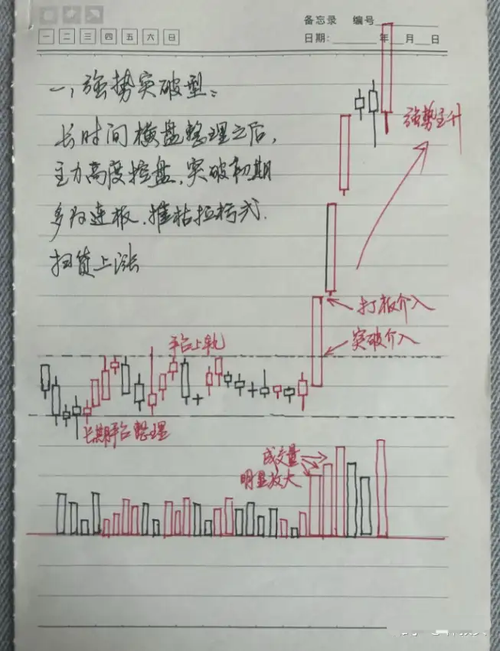 备忘录 编号
一 二 三 四 五 六 日
日期： 年 月 日
一、强势突破型：
长时间横盘整理之后，
主力高度控盘、突破初期
多为连板、摧枯拉朽式
扫货上涨
强势主升
打板介入
突破介入
平台上轨
长期平台整理
成交量
明显放大